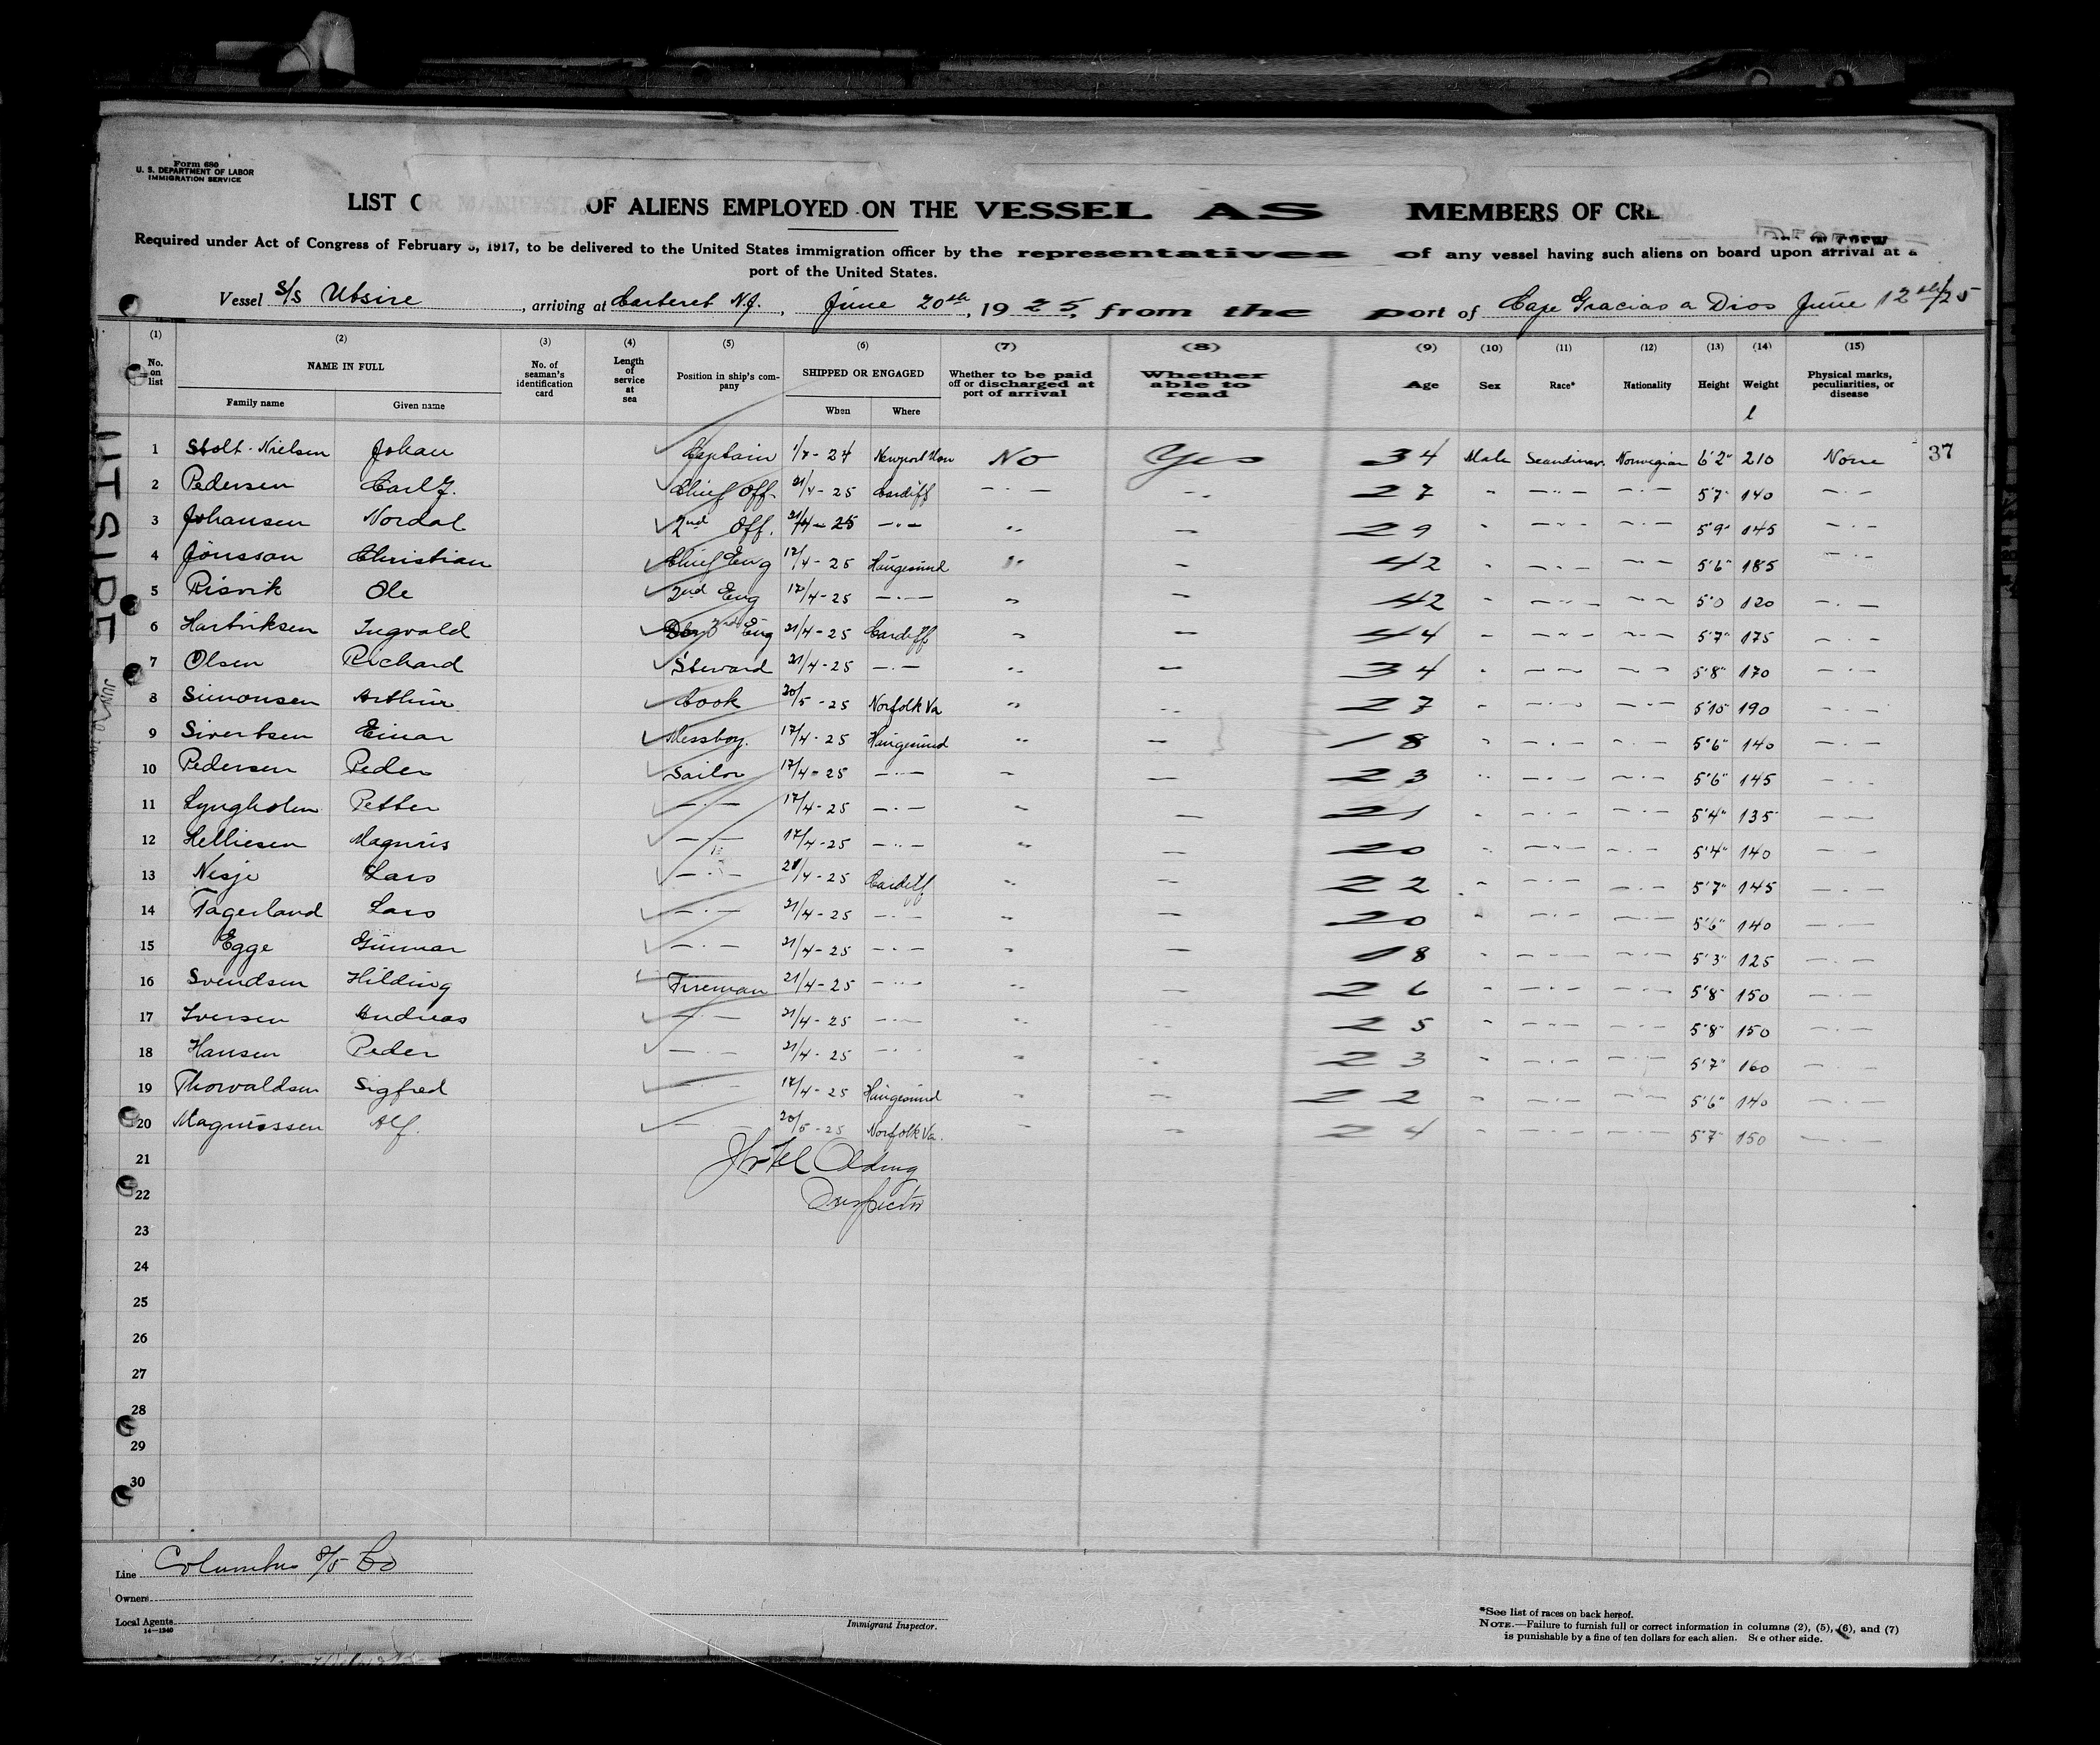 Form 680
U. S. DEPARTMENT OF LABOR
IMMIGRATION SERVICE
LIST OR MANIFEST OF ALIENS EMPLOYED ON THE VESSEL AS MEMBERS OF CREW
Required under Act of Congress of February 5, 1917, to be delivered to the United States immigration officer by the representatives of any vessel having such aliens on board upon arrival at a
port of the United States.
Vessel S/S Utsire, arriving at Carteret N.J., June 20th, 1925, from the port of Cape Gracias a Dios June 12th/25
(1) (2) (3) (4) (5) (6) (7) (8) (9) (10) (11) (12) (13) (14) (15)
No. on list NAME IN FULL No. of seaman's identification card Length of service at sea Position in ship's company SHIPPED OR ENGAGED Whether to be paid off or discharged at port of arrival Whether able to read Age Sex Race* Nationality Height Weight Physical marks, peculiarities, or disease
Family name Given name When Where
1 Stolt-Nielsen Johan Captain 1/7-24 Newport Mon No Yes 34 Male Scandinav. Norwegian 6'2" 210 None 37
2 Pedersen Carl J. Chief Off. 21/4-25 Cardiff -"- -"- 27 " -"- -"- 5'7" 140 -"-
3 Johansen Nordal 2nd Off. 21/4-25 -"- " - 29 " -"- -"- 5'9" 145 -"-
4 Jönsson Christian Chief Eng 17/4-25 Haugesund " - 42 " -"- -"- 5'6" 185 -"-
5 Risvik Ole 2nd Eng 17/4-25 -"- " - 42 " -"- -"- 5'0 120 -"-
6 Hartviksen Ingvald 3rd Eng 21/4-25 Cardiff " - 44 " -"- -"- 5'7" 175 -"-
7 Olsen Richard Steward 21/4-25 -"- " - 34 " -"- -"- 5'8" 170 -"-
8 Simonsen Arthur Cook 20/5-25 Norfolk Va " " 27 " -"- -"- 5'10 190 -"-
9 Sivertsen Einar Messboy. 17/4-25 Haugesund " - 18 " -"- -"- 5'6" 140 -"-
10 Pedersen Peder Sailor 17/4-25 -"- " - 23 " -"- -"- 5'6" 145 -"-
11 Lyngholm Petter -"- 17/4-25 -"- " - 21 " -"- -"- 5'4" 135 -"-
12 Helliesen Magnus -"- 17/4-25 -"- " - 20 " -"- -"- 5'4" 140 -"-
13 Nesje Lars -"- 21/4-25 Cardiff " - 22 " -"- -"- 5'7" 145 -"-
14 Fagerland Lars -"- 21/4-25 -"- " - 20 " -"- -"- 5'6" 140 -"-
15 Egge Gunnar -"- 21/4-25 -"- " - 18 " -"- -"- 5'3" 125 -"-
16 Svendsen Hilding Fireman 21/4-25 -"- " - 26 " -"- -"- 5'8" 150 -"-
17 Iversen Andreas -"- 21/4-25 -"- " " 25 " -"- -"- 5'8" 150 -"-
18 Hansen Peder -"- 21/4-25 -"- " " 23 " -"- -"- 5'7" 160 -"-
19 Thorvaldsen Sigfred -"- 17/4-25 Haugesund " " 22 " -"- -"- 5'6" 140 -"-
20 Magnussen Alf. -"- 20/5-25 Norfolk Va. " " 24 " -"- -"- 5'7" 150 -"-
21
22 Inspector
23
24
25
26
27
28
29
30
Line Columbus S/S Co
Owners
Local Agents
14—1240
Immigrant Inspector.
*See list of races on back hereof.
NOTE.—Failure to furnish full or correct information in columns (2), (5), (6), and (7)
is punishable by a fine of ten dollars for each alien. See other side.
UTSIRE